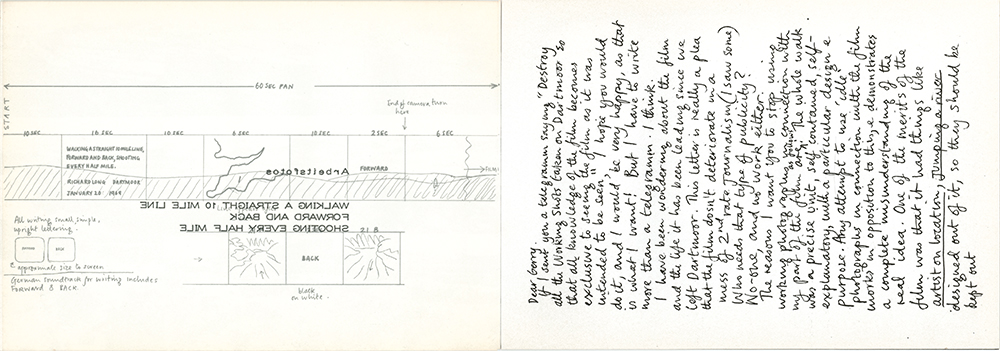 60 SEC PAN
START
End of camera turn
here
10 SEC
10 SEC
10 SEC
6 SEC
10 SEC
2 SEC
6 SEC
WALKING A STRAIGHT 10 MILE LINE,
FORWARD AND BACK, SHOOTING
EVERY HALF MILE.
RICHARD LONG DARTMOOR
JANUARY 20 1969
Arbeitsfotos
FORWARD
WALKING A STRAIGHT 10 MILE LINE
FORWARD AND BACK
SHOOTING EVERY HALF MILE
21.8
BACK
black
on white.
All writing small, simple,
upright lettering.
BACK
approximate size to screen
German soundtrack for writing includes
FORWARD & BACK
Dear Gerry
If I sent you a telegramm saying "Destroy
all the Working Shots taken on Dartmoor so
that all knowledge of the film becomes
exclusive to seeing the film as it was
intended to be seen" I hope you would
do it, and I would be very happy, as that
is what I want! But I have to write
more than a telegramm, I think.
I have been wondering about the film
and the life it has been leading since we
left Dartmoor. This letter is really a plea
that the film doesn't deteriorate in a
mess of 2nd rate Journalism (I saw some)
Who needs that type of publicity?
No-one, and no work either.
The reasons I want you to stop using
working photographs in connection with
my part of the film are: The whole walk
was a precise unit, self contained, self-
explanatory, with a particular design &
purpose. Any attempt to use "idle"
photographs in connection with the film
works in opposition to this, & demonstrates
a complete misunderstanding of the
real idea. One of the merits of the
film was that it had things like
artist on location, Jumping a river
designed out of it, so they should be
kept out